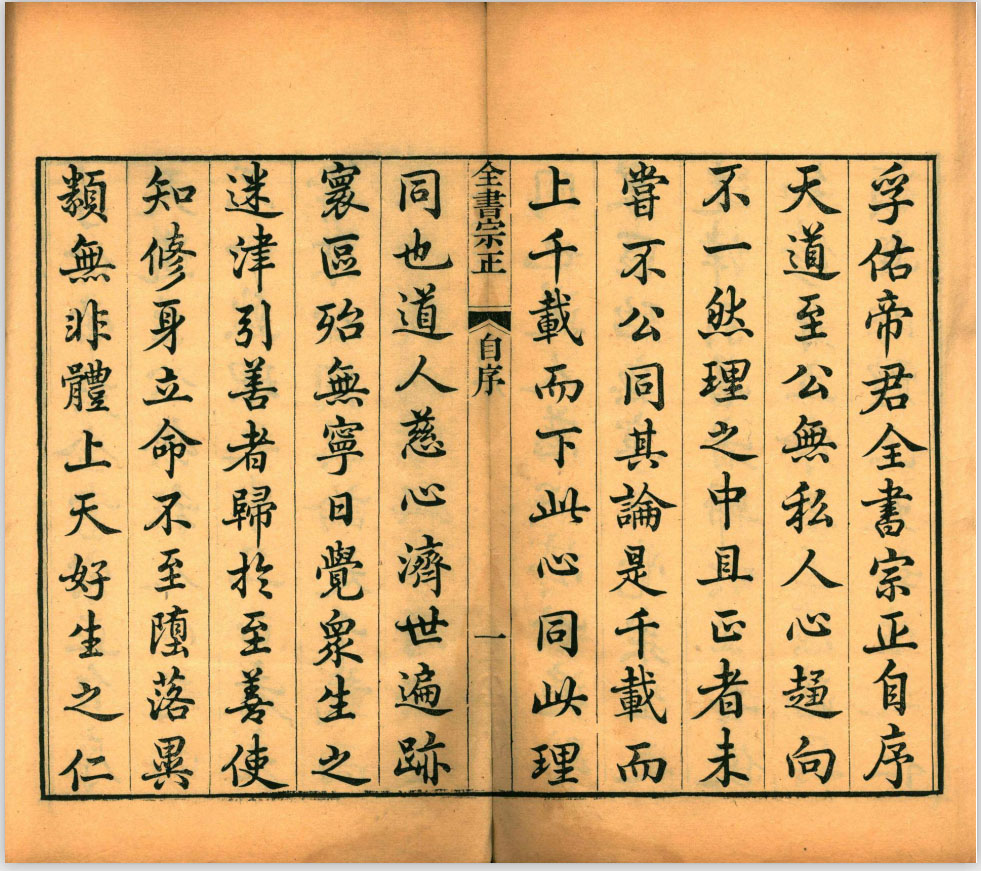 孚佑帝君全書宗正自序
天道至公無私人心趨向
不一然理之中且正者未
嘗不公同其論是千載而
上千載而下此心同此理
全書宗正 自序 一
同也道人慈心濟世遍跡
寰區殆無寧日覺衆生之
迷津引善者歸於至善使
知修身立命不至墮落異
類無非體上天好生之仁